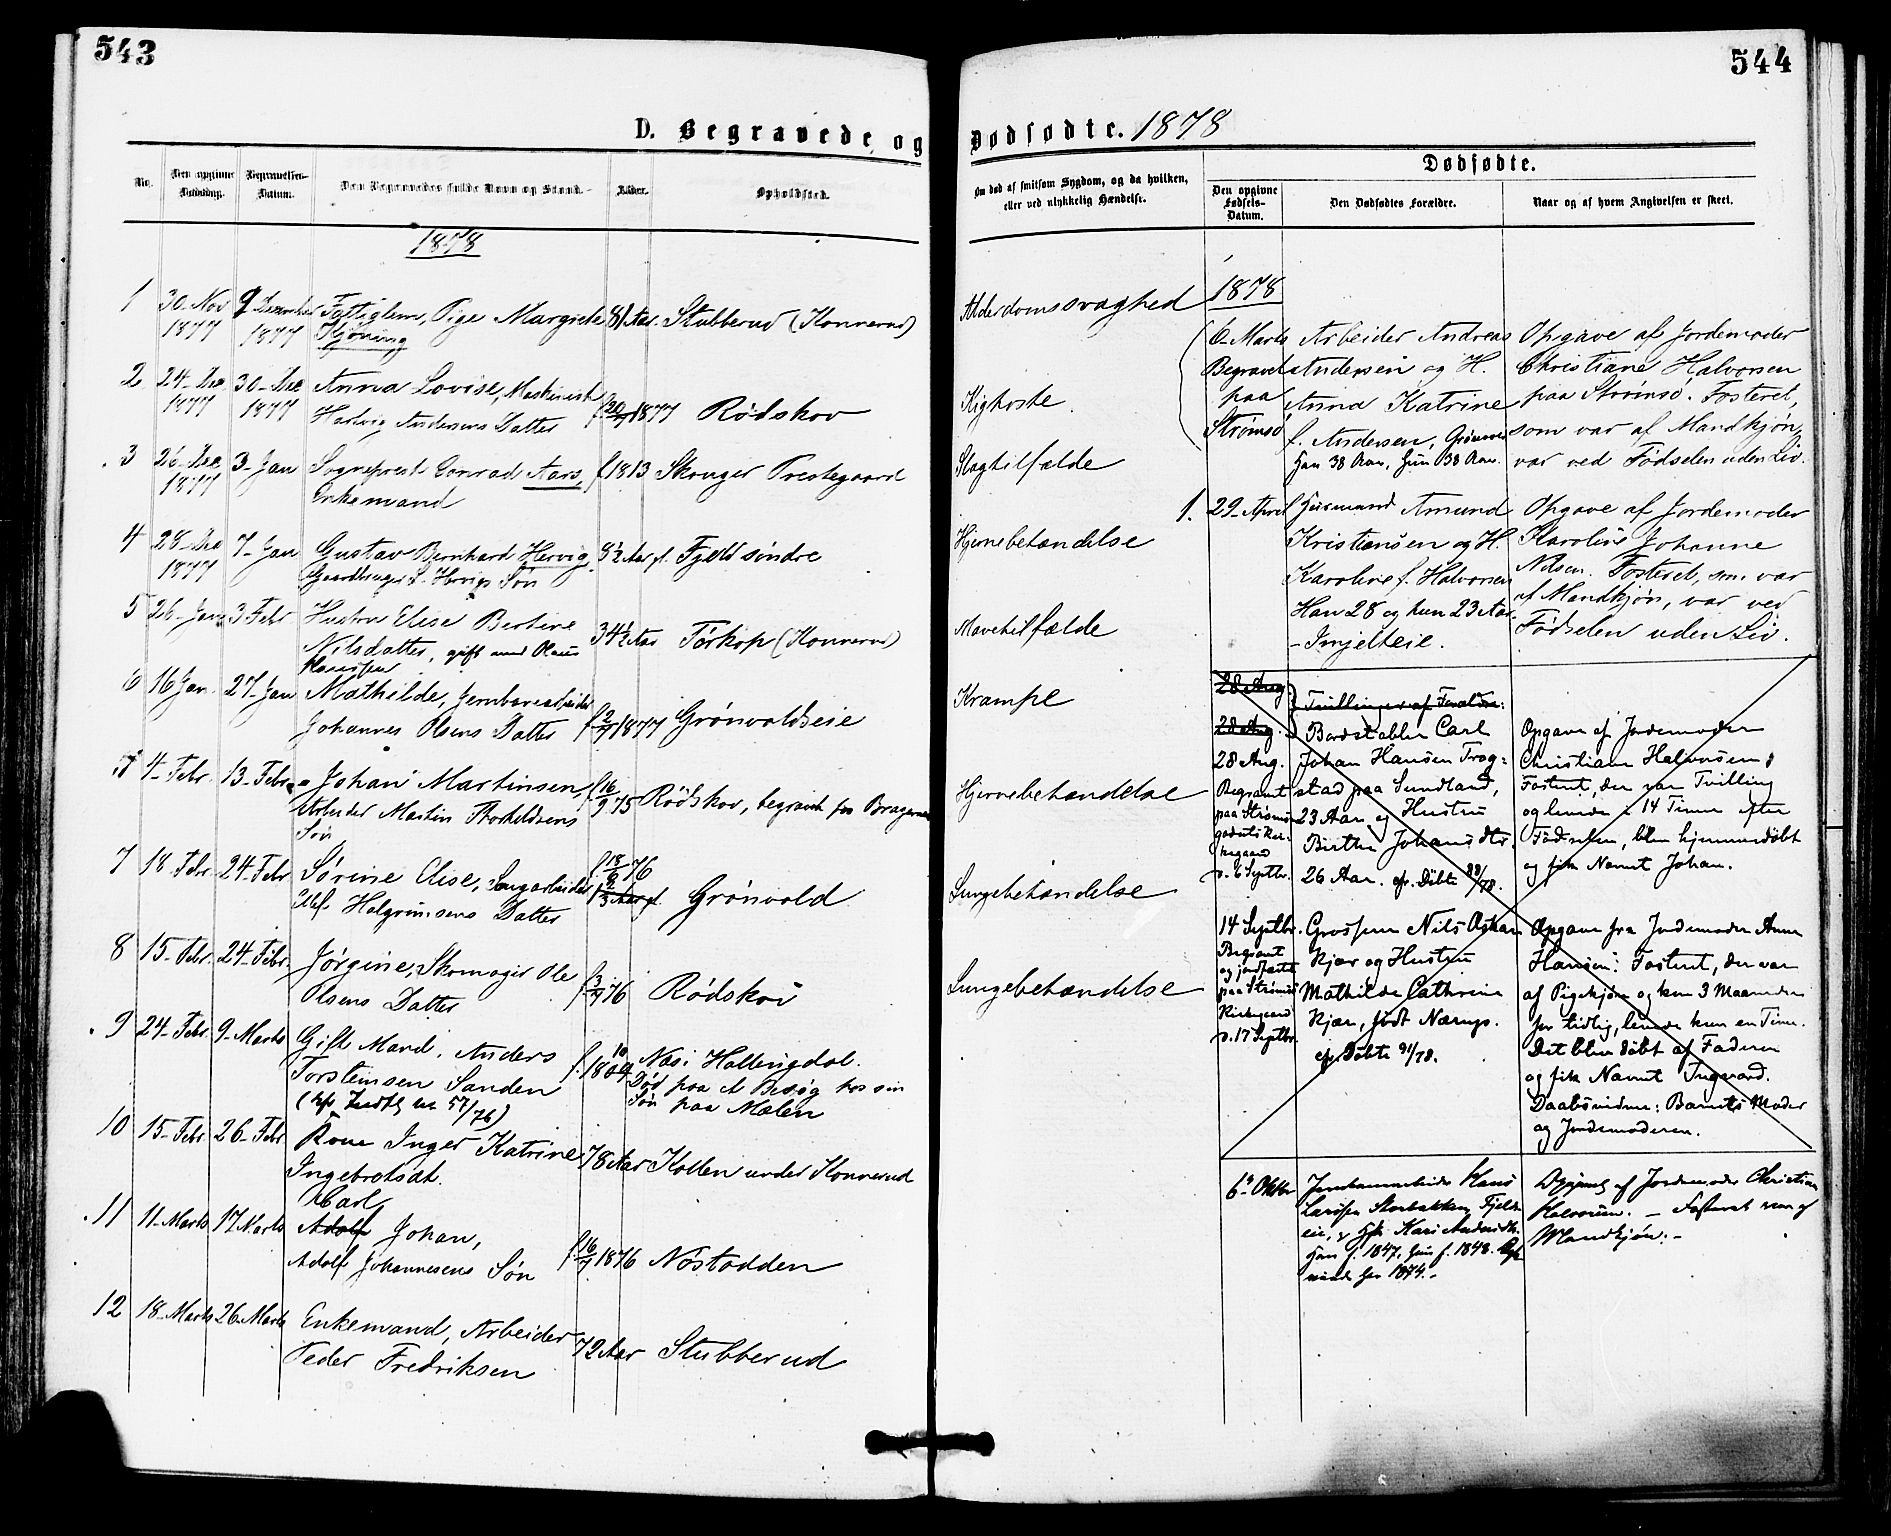 543
D. Begravede og
No.
Den opgivne Dødsdag.
Begravelses-Datum.
Den Begravedes fulde Navn og Stand.
Alder.
Opholdsted.
1878
1 30-Nov 1877 9 December 1877 Fattiglem, Pige Margrete 81 Aar. Stubberud (Konnerud)
2 24-Dec 1877 30-Dec 1877 Anna Lovise, Maskinist
Hartvig Andersens Datter 1877 Rødskov
3 26-Dec 1877 3-Jan Sogneprest Conrad Aars, f 1813 Skouger Prestegaard
Enkemand
4 28-Dec 1877 7-Jan Gustav Bernhard Hervig, 8½ Aar gl. Fjeld søndre
Gaardbruger L. Hervigs Søn
5 26-Jan 3-Febr Hustru Elise Bertine
Nilsdatter, gift med Olaus 34½ Aar Tørkop (Konnerud)
Hansen
6 16 Jan. 27-Jan Mathilde, Jernbanearbeider
Johannes Olsens Datter 1877 Grønvoldseie
4-Febr. 13-Febr. Johan Martinsen,
Arbeider Martin Thorkeldsens f 16/9 75 Rødskov, begravet paa Bragernes
Søn
7 18-Febr. 24-Febr Sørine Elise, Saugarbeider
Halgrimsens Datter Grønvold
8 15-Febr. 24-Febr. Jørgine, Skomager Ole
Olsens Datter 76 Rødskov
9 24-Febr. 9-Marts Gift Mand, Anders f. 1809 Næs i Hallingdal.
Torstensen Sanden Død paa et Besøg hos sin
57/76) Søn paa Mælen
10 15-Febr. 26-Febr Kone Inger Katrine 78 Aar Kollen under Konnerud
Ingebretsdt.
Karl
11 11-Marts 17 Marts Adolf Johan,
Adolf Johannesens Søn 1876 Nøstodden
12 18-Marts 26-Marts Enkemand, Arbeider
Peder Fredriksen 72 Aar Stubberud
544
Dødsødte. 1878
Om død af smitsom Sygdom, og da hvilken,
eller ved ulykkelig Hændelse.
Dødfødte.
Den opgivne Fødsels-Datum.
Den Dødfødtes Forældre.
Naar og af hvem Angivelsen er skeet.
Alderdomssvaghed
Kighoste.
Slagtilfælde
Hjernebetændelse
Mavetilfælde
Krampe
Hjernebetændelse
Lungebetændelse
Lungebetændelse
1878
6-Marts Arbeider Andreas Opgave af Jordemoder
Begravet Andersen og H. Christiane Halvorsen
paa Anna Katrine paa Strømsø. Fosteret,
Strømsø f. Andersen, som var af Mandkjøn,
Han 38 Aar, Hun 38 Aar. var ved Fødselen uden Liv.
1. 29-April Husmand Amund Opgave af Jordemoder
Kristiansen og H. Karoline Johanne
Karoline f. Halvorsen Nilsen. Fosteret, som var
Han 28 og hun 23 Aar af Mandkjøn, var ved
Fødselen uden Liv.
28 Aug Tvillinger af Forældre:
28 Aug. Carl Opgave af Jordemoder
28 Aug. Johan Hansen Trøg= Christiane Halvorsen;
Begravet stad paa Sundland, Fosteret, der var Tvilling
paa Strømsø 23 Aar og Hustru og levede i 14 Timer efter
Birthe Johansdtr. Fødselen, blev hjemmedøbt
d. 6 Septbr. 26 Aar. cfr. Døbte 88/78. og fik Navnet Johan.
14 Septbr. Grosserer Nils Oskar Opgave fra Jordemoder Anne
Begravet Kjær og Hustru Hansen: Fosteret, der var
og jordfæstet Mathilde Cathrine af Pigekjøn og kun 3 Maaneder
paa Strømsø Kjær, født Nærup. for tidlig, levede kun en Time.
Kirkegaard cfr. Døbte 91/78. Det blev døbt af Faderen
d. 17 Septbr. og fik Navnet Ingvard.
Daabsvidne: Barnets Moder
og Jordemoderen.
6te Oktbr Jernbanearbeider Hans Opgivet af Jordemoder Christiane
Larsen Storbakken, Fjeld- Halvorsen. – Fosteret var af
eie, Kari Mandkjøn.-
Han f. 1847, Hun f. 1848.
1874.-